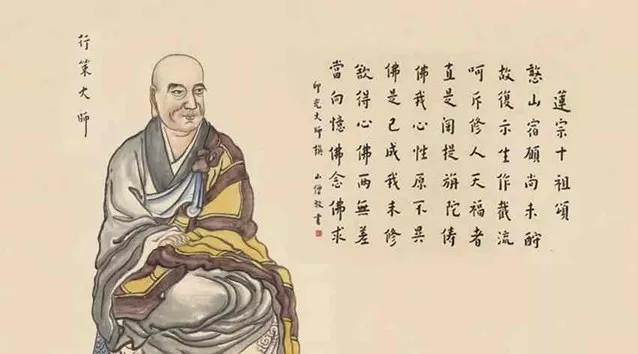 蓮宗十祖頌
憨山宿願尚未酬
故復示生作截流
呵斥修人天福者
直是闡提旃陀儔
佛我心性原不異
佛是已成我未修
欲得心佛兩無差
當向憶佛念佛求
印光大師撰 山僧敬書
行策大師